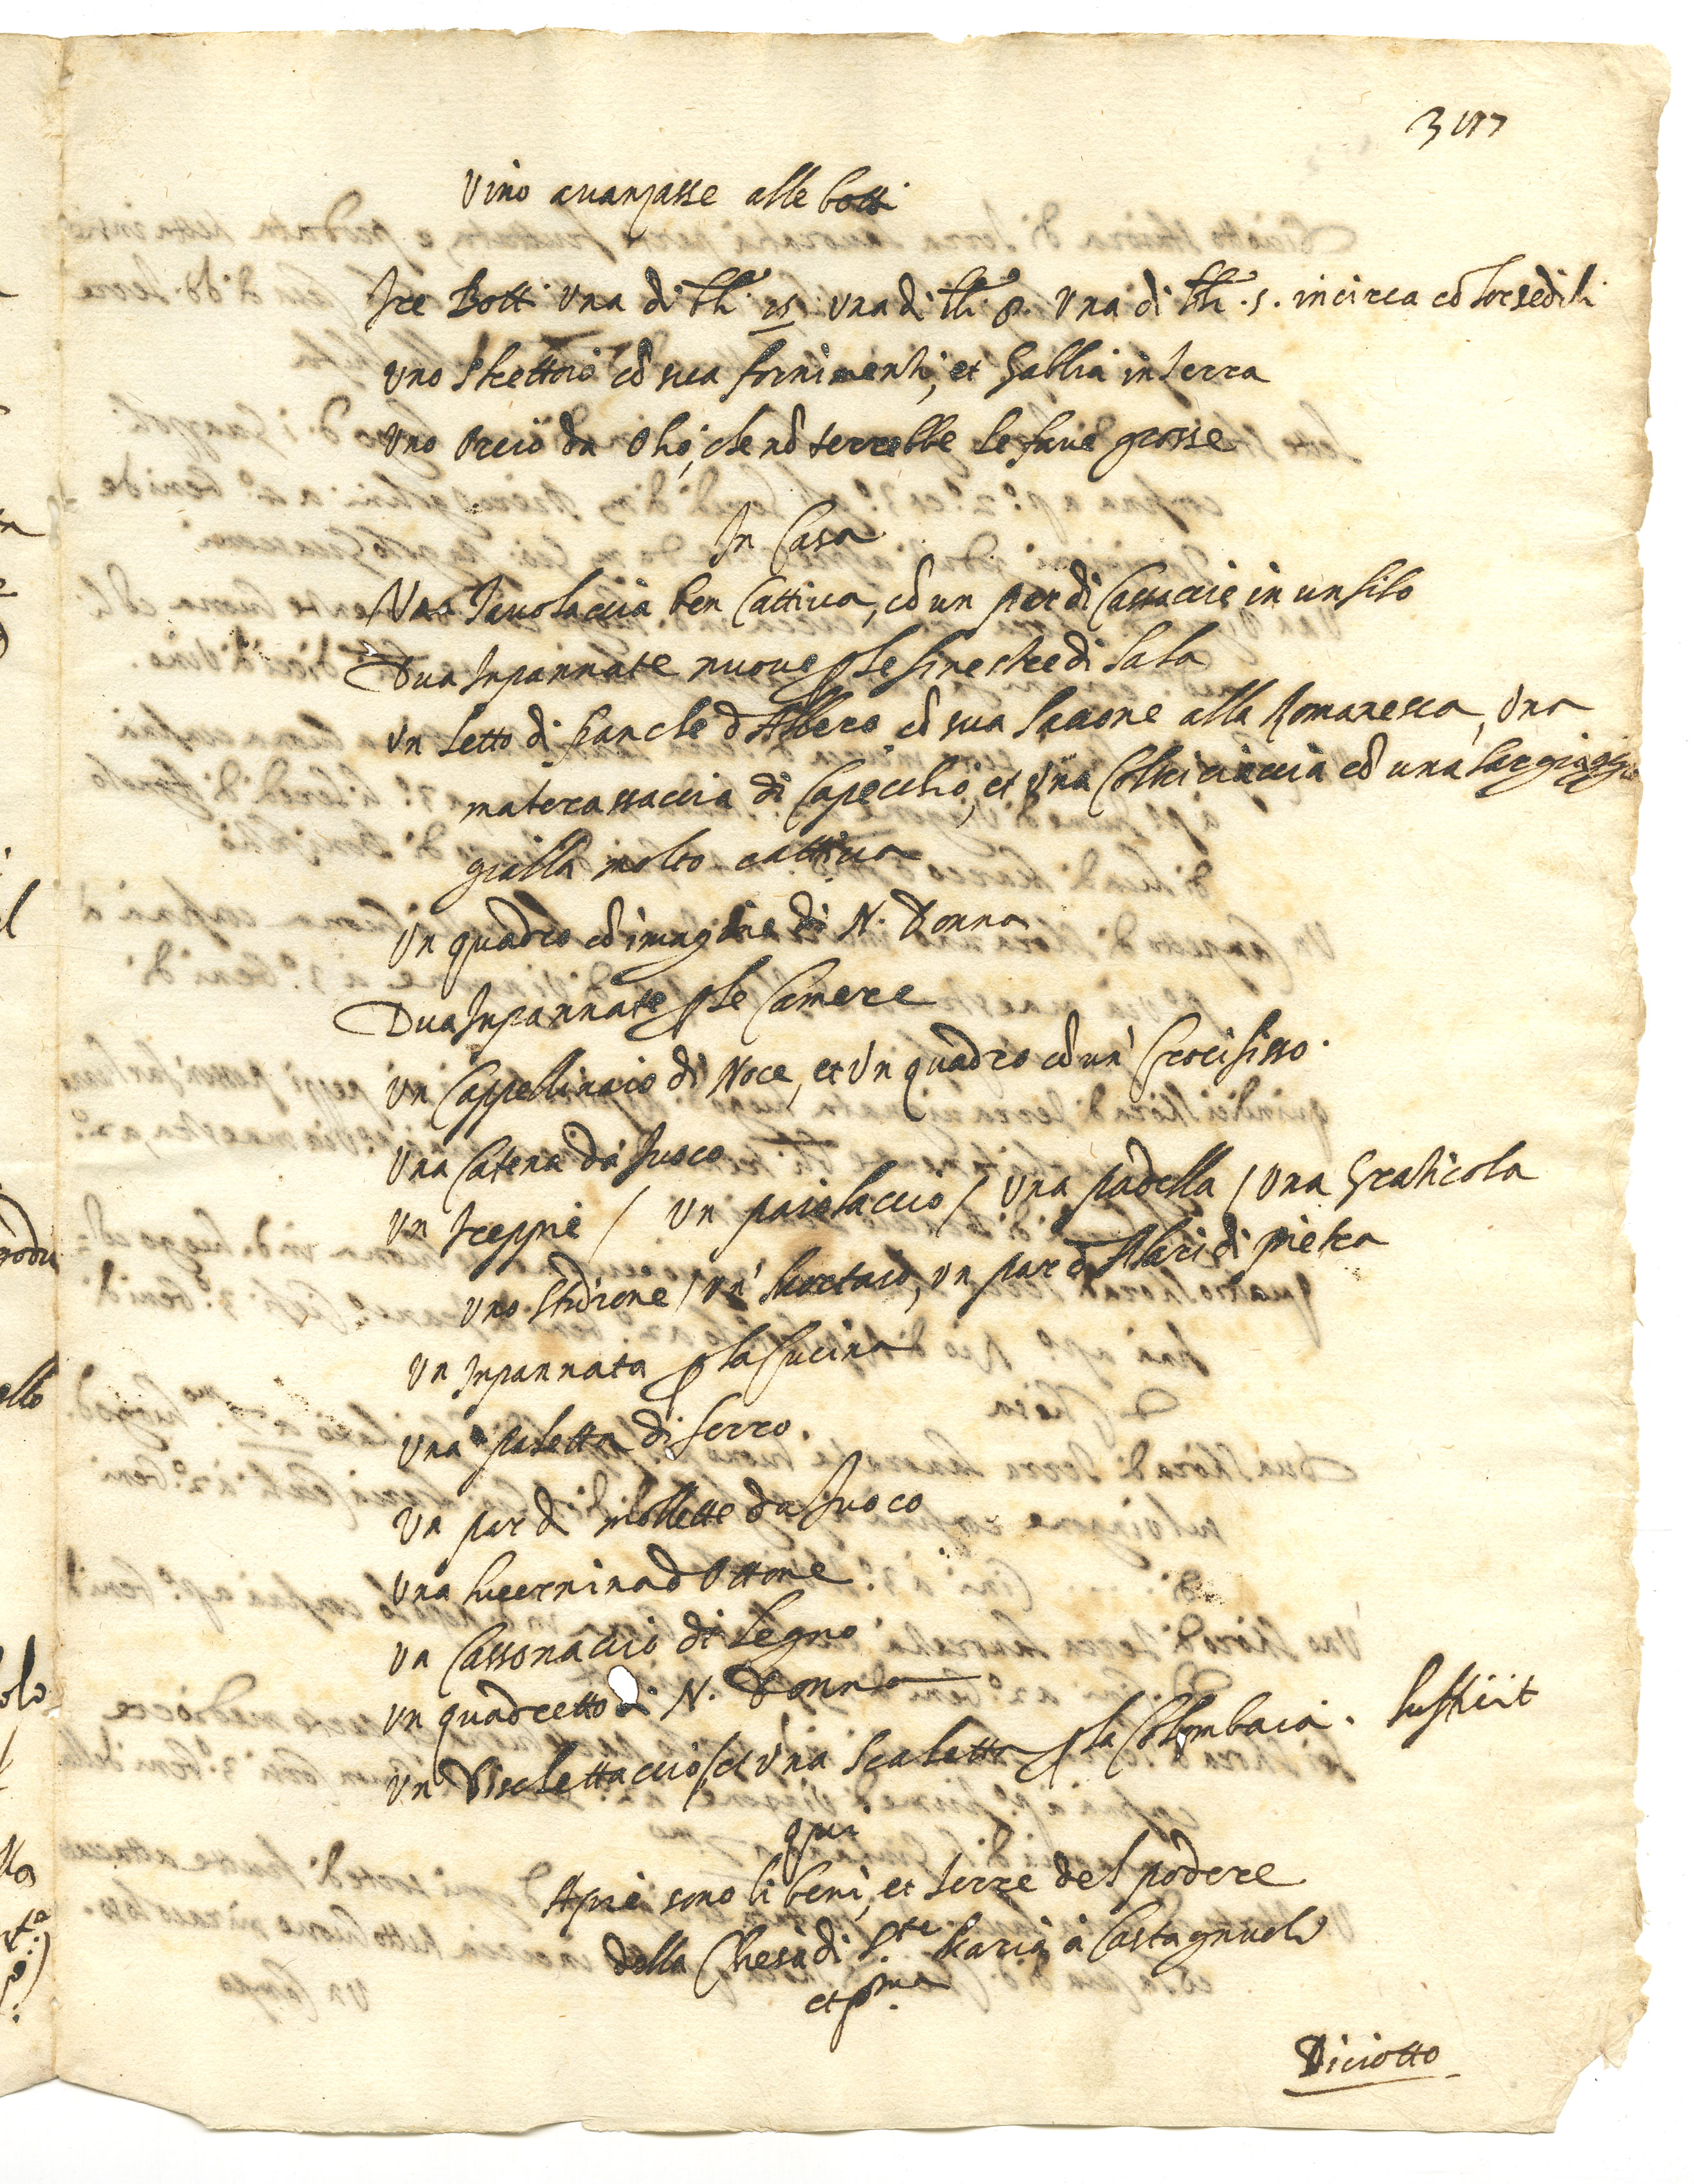 Vino avanzasse alle botti
Tre Botti una di bli. 15. una di bli. 8. Una di bli. 5. incirca cō lor sedili
Uno strettoio cō sua fornimenti, et Gabbia in terra
Uno orcio da olio, che nō terrebbe le fave grosse
In Casa
Una Tavolaccia ben Cattiva, cō un par di Cassaccie in un filo
Dua Inpannate nuove p le finestre di sala
Un letto di panche d'Albero cō sua saccone alla Romanesca, una
materassaccia di Capecchio, et una Coltriciaccia cō una
gialla molto cattiva
Un quadro cō imagine di N. Donna
Dua Inpannate p le Camere
Un Cappellinaio di Noce, et Un quadro cō un' Crocifisso.
Una Catena da fuoco
Un treppiè / Un paiolaccio / Una padella / Una Graticola
Uno stidione / Un' , un par d'Alari di pietra
Un Inpannata p la Cucina
Una paletta di ferro.
Un par di mollette da fuoco
Una lucernina d'Ottone
Un Cassonaccio di Legno
Un quadretto di N. Donna
Un Dischettaccio, et Una scaletta p la Colombaia.
qui
Apiè sono li beni, et terre del podere
della Chiesa di S.ta Maria à Castagnuolo
et p.ma
Diciotto